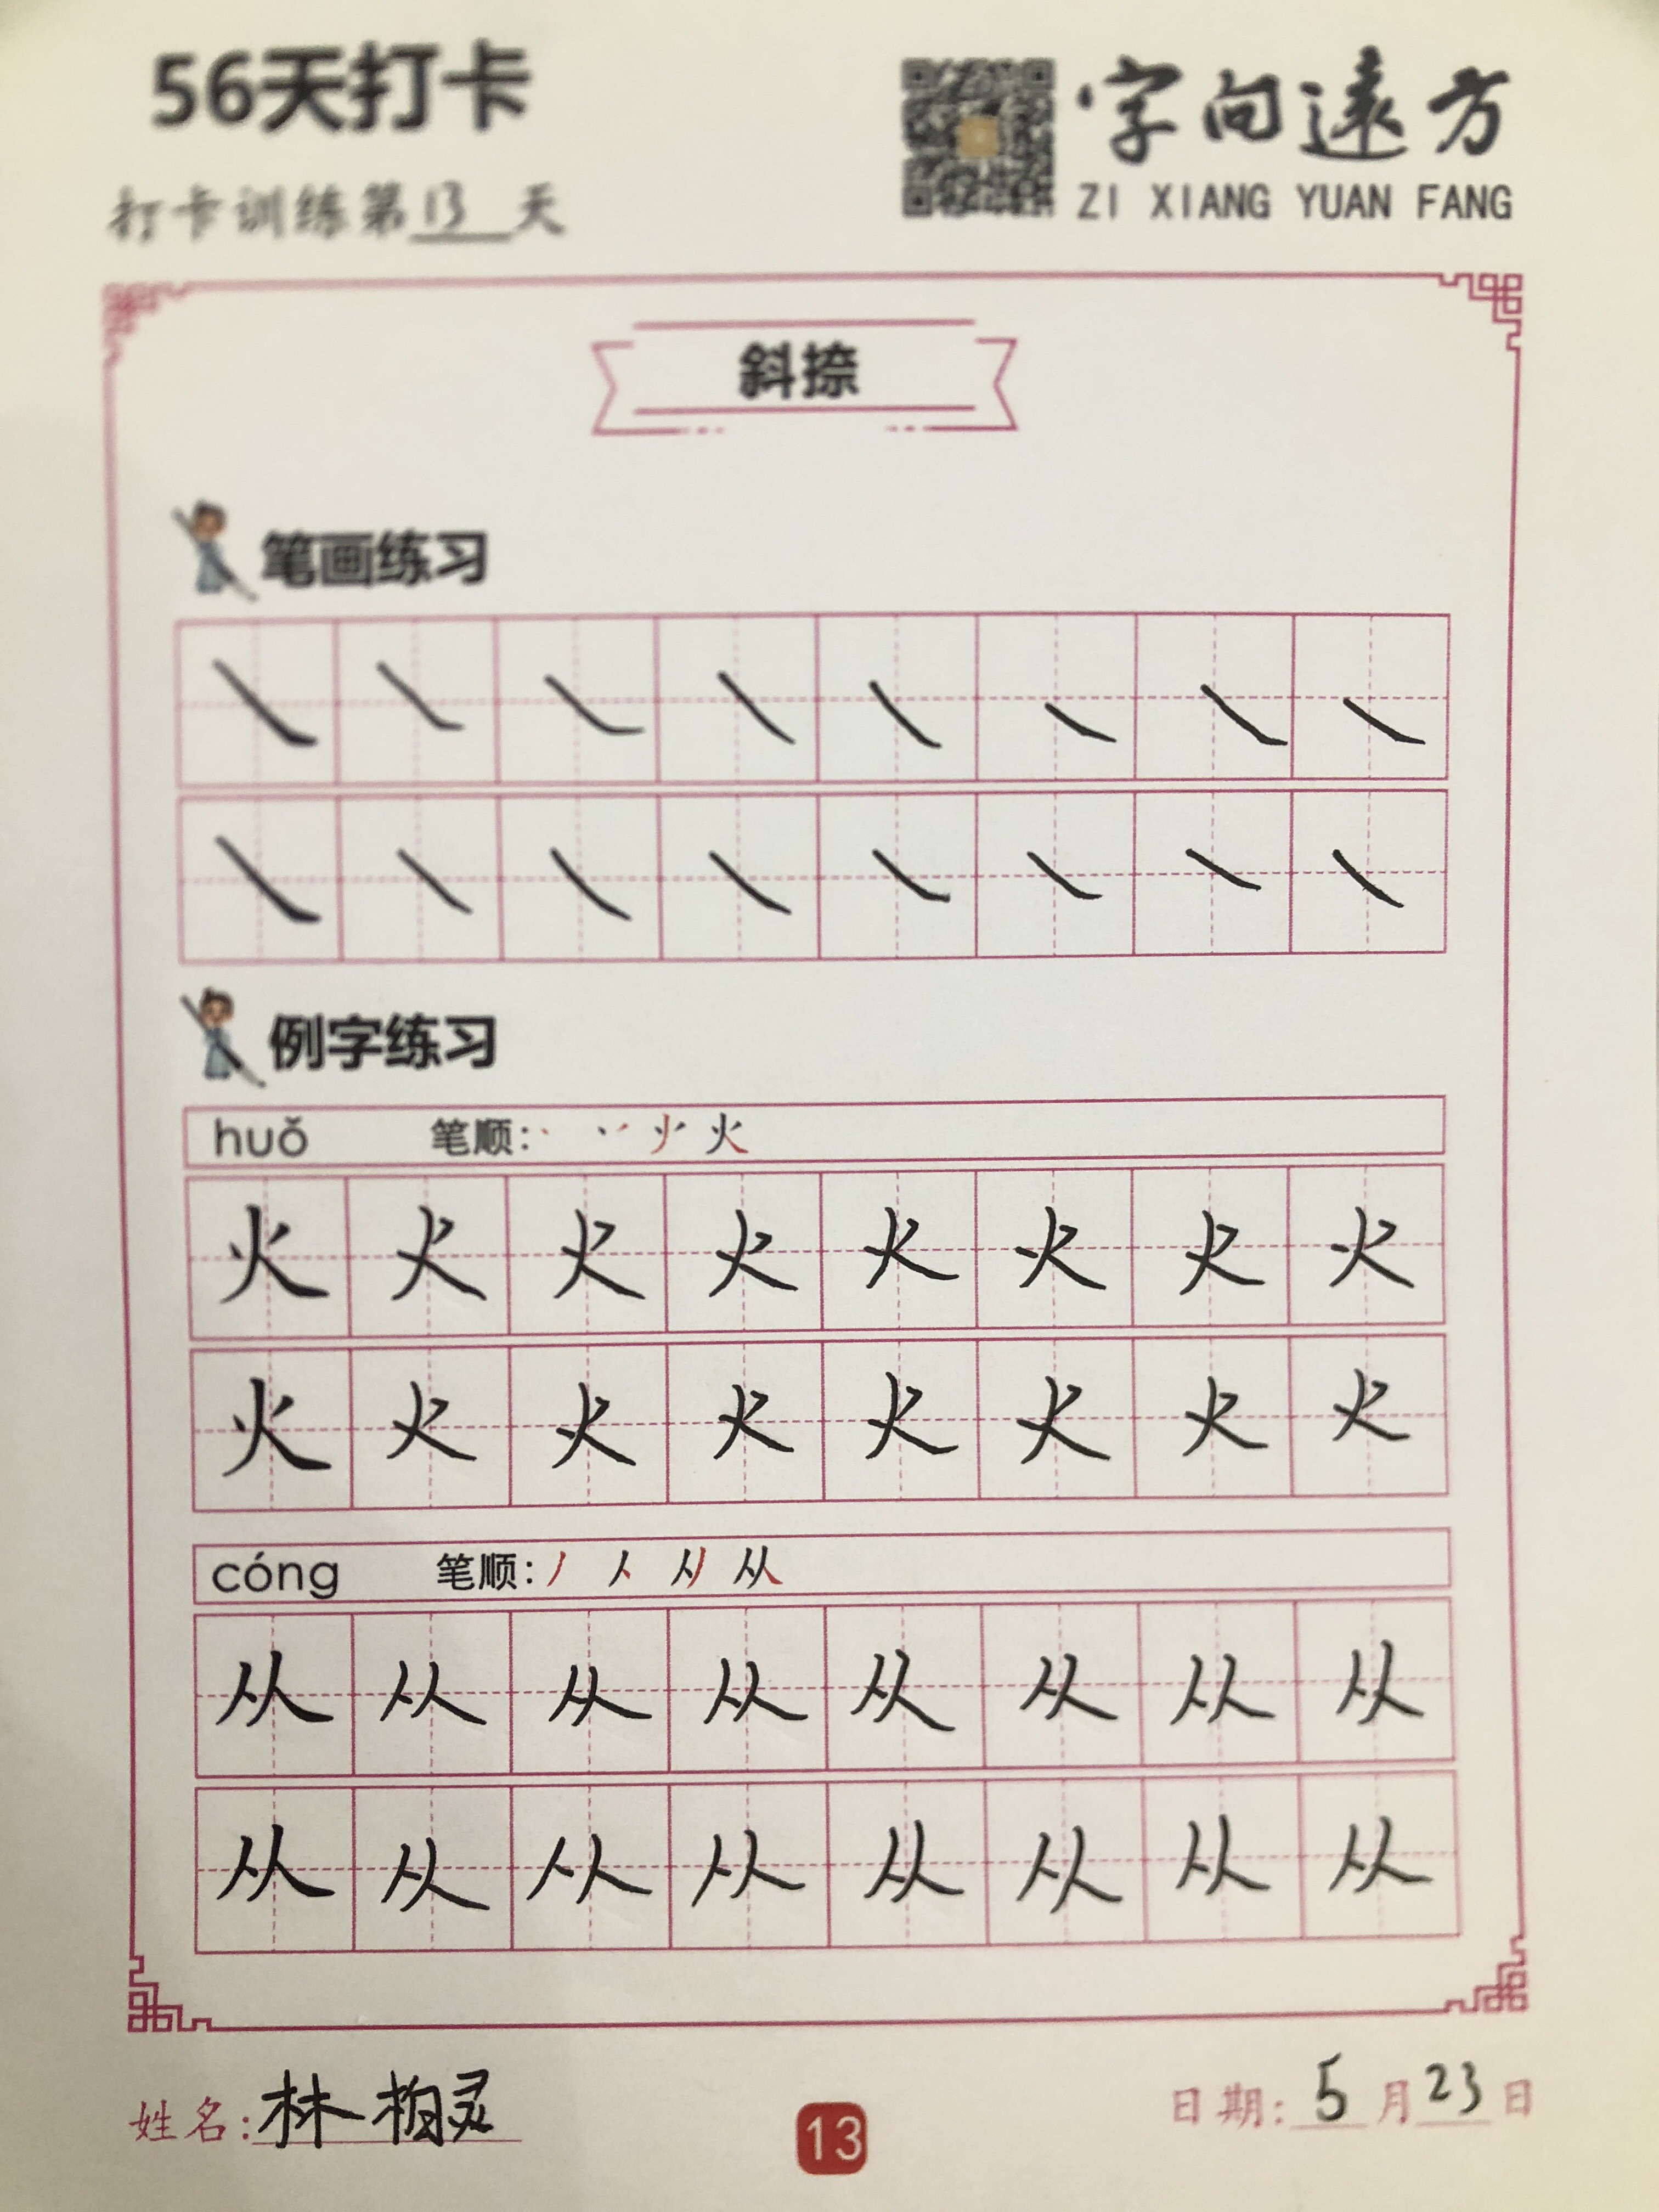 56天打卡
字向遠方
ZI XIANG YUAN FANG
打卡训练第13天
斜捺
笔画练习
㇏ ㇏ ㇏ ㇏ ㇏ ㇏ ㇏ ㇏
㇏ ㇏ ㇏ ㇏ ㇏ ㇏ ㇏ ㇏
例字练习
huǒ 笔顺: 火
火 火 火 火 火 火 火 火
火 火 火 火 火 火 火 火
cóng 笔顺: 丿 人 从
从 从 从 从 从 从 从 从
从 从 从 从 从 从 从 从
姓名: 林柏灵
13
日期: 5月23日